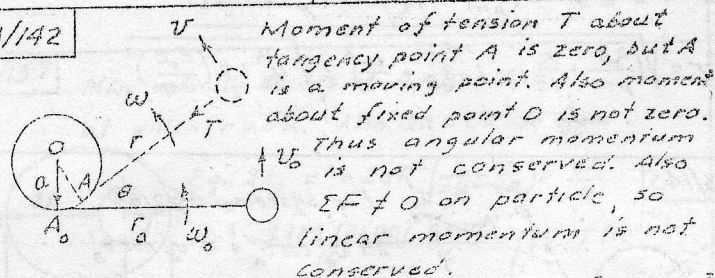 /142
Moment of tension T about
tangency point A is zero, but A
is a moving point. Also moment
about fixed point O is not zero.
Thus angular momentum
is not conserved. Also
ΣF ≠ 0 on particle, so
linear momentum is not
conserved.
v
ω
T
r
O
a
A
θ
v₀
A₀
r₀
ω₀